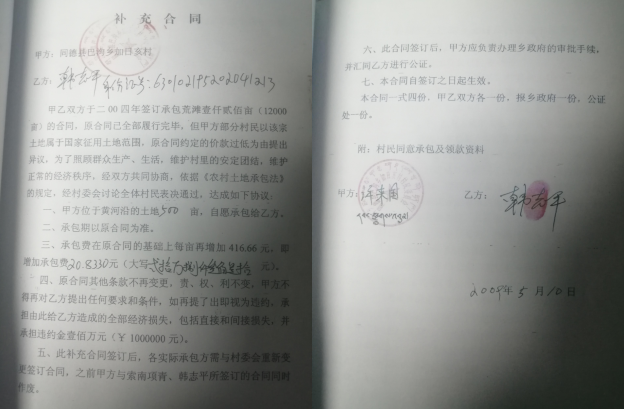 补充合同
甲方：同德县巴沟乡如日亥村
乙方：韩志平 身份证号：630102195202041213
甲乙双方于二00四年签订承包荒滩壹仟贰佰亩（12000
亩）的合同，原合同已全部履行完毕，但甲方部分村民以该宗
土地属于国家征用土地范围，原合同约定的价款过低为由提出
异议，为了照顾群众生产、生活，维护村里的安定团结，维护
正常的经济秩序，经双方共同协商，依据《农村土地承包法》
的规定，经村委会讨论全体村民表决通过，达成如下协议：
一、甲方位于黄河沿的土地500亩，自愿承包给乙方。
二、承包期以原合同为准。
三、承包费在原合同的基础上每亩再增加416.66元，即
增加承包费20.8330元（大写 元）。
四、原合同其他条款不再变更，责、权、利不变，甲方不
得再对乙方提出任何要求和条件，如再提了出即视为违约，承
担由此给乙方造成的全部经济损失，包括直接和间接损失，并
承担违约金壹佰万元（￥1000000元）。
五、此补充合同签订后，各实际承包方需与村委会重新变
更签订合同，之前甲方与索南项青、韩志平所签订的合同同时
作废。
六、此合同签订后，甲方应负责办理乡政府的审批手续，
并汇同乙方进行公证。
七、本合同自签订之日起生效。
本合同一式四份，甲乙双方各一份，报乡政府一份，公证
处一份。
附：村民同意承包及领款资料
甲方： 乙方：韩志平
2009年5月10日